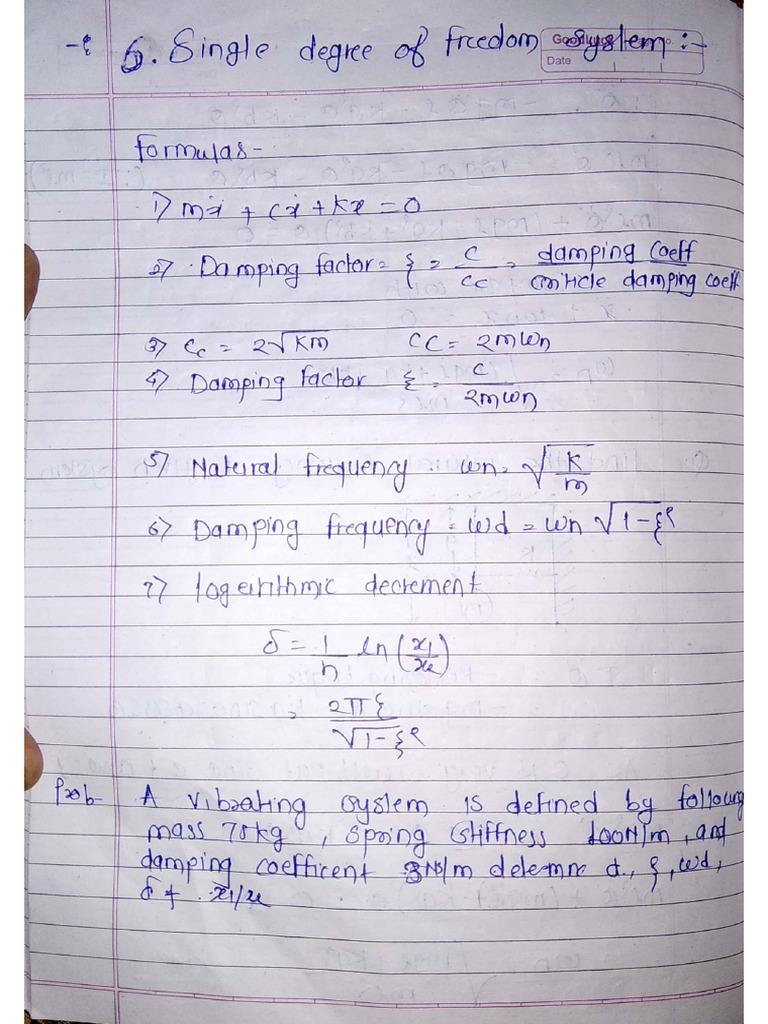 6. Single degree of freedom system :-
Date
Formulas -
1) mẍ + cẋ + kx = 0
2) Damping factor = ξ = c / cc = damping coeff / criticle damping coeff
3) Cc = 2√km   CC = 2mωn
4) Damping factor ξ = c / 2mωn
5) Natural frequency ωn = √k/m
6) Damping frequency = ωd = ωn √1-ξ²
7) logerithmic decrement
δ = 1/n ln (x1/x2)
= 2πξ / √1-ξ²
Prob - A vibrating system is defined by following
mass kg , spring stiffness 100N/m , and
damping coefficent 3N/m ξ , ωd ,
δ + x1/x2